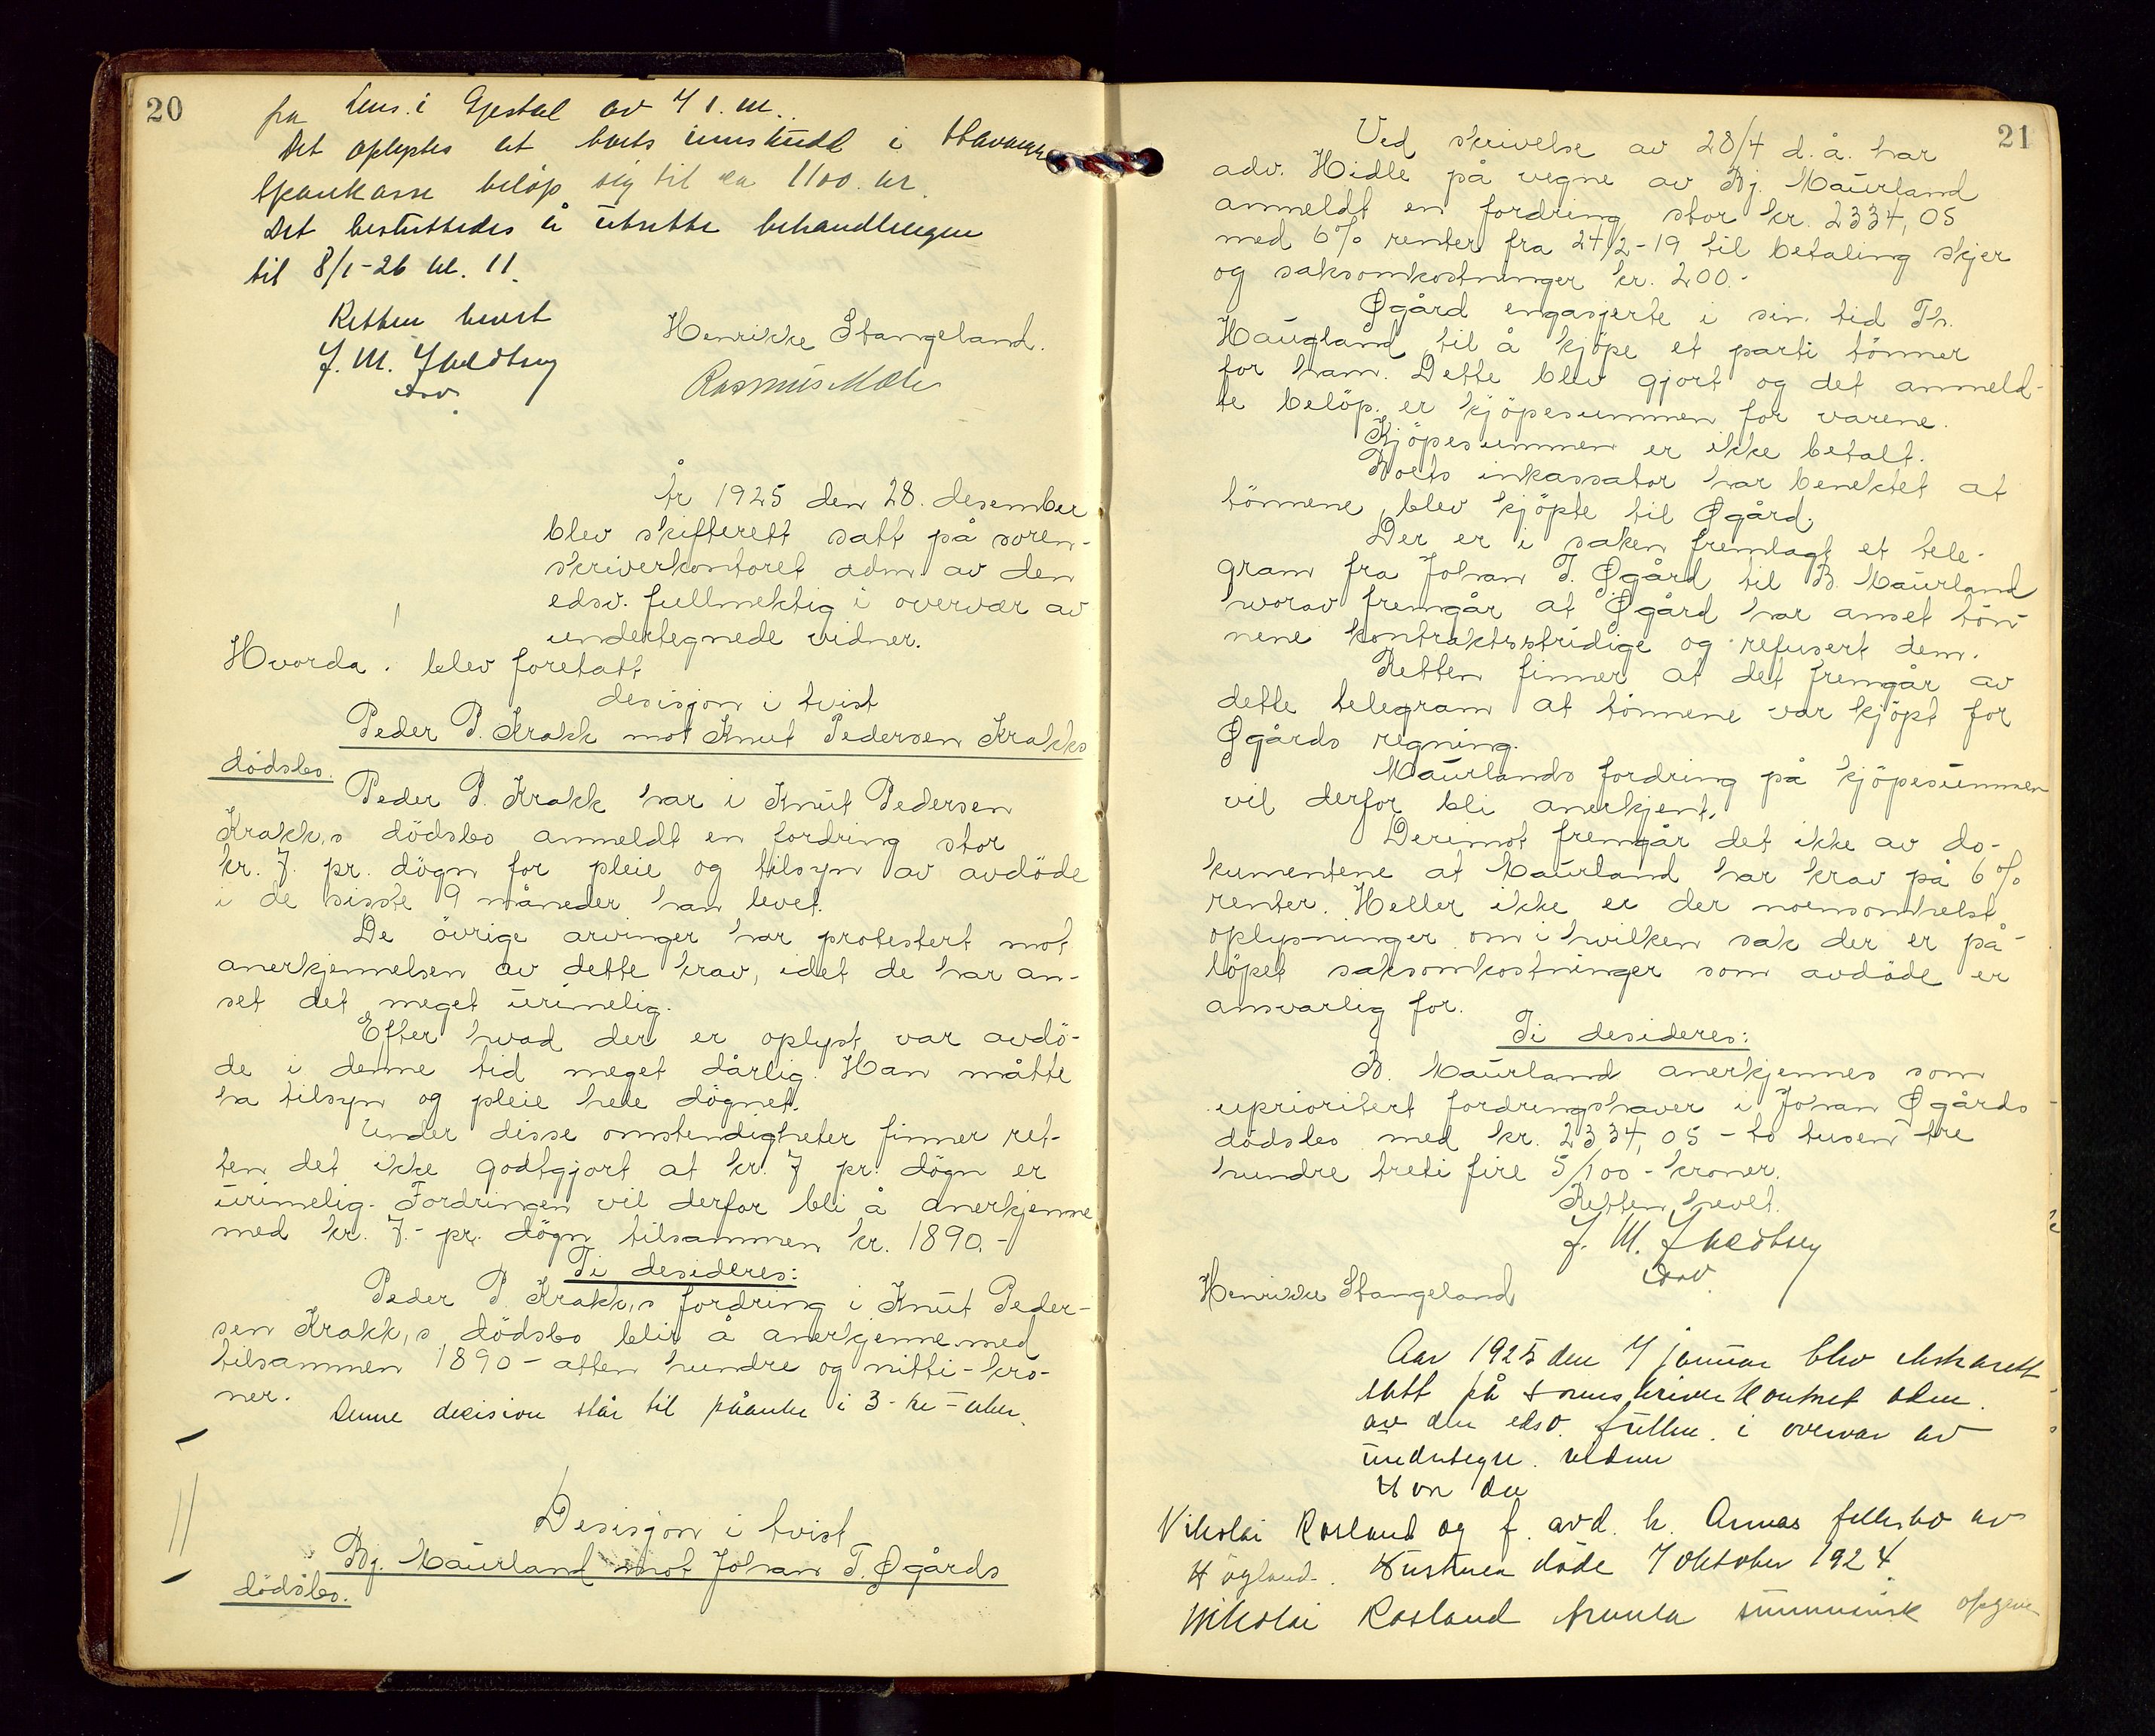 20
fra lens. i Gjestal av 7 d. m.
Det oplystes at boets innskudd i Stavanger
Sparekasse beløp sig til ca 1100. kr.
Det besluttedes å utsette behandlingen
til 8/1-26 kl. 11.
Retten hevet
Henrikke Stangeland.
J. M.
edsv.
Rasmus
År 1925 den 28. desember
blev skifterett satt på soren-
skriverkontoret adm. av den
edsv. fullmektig i overvær av
undertegnede vidner.
Hvorda. blev foretatt
desisjon i tvist
Peder P. Krakk mot Knut Pedersen Krakks
dödsbo.
Peder P. Krakk har i Knut Pedersen
Krakk,s dödsbo anmeldt en fordring stor
kr. 7. pr. dögn for pleie og tilsyn av avdöde
i de sisste 9 måneder han levet.
De övrige arvinger har protestert mot
anerkjennelsen av dette krav, idet de har an-
set det meget urimelig.
Efter hvad der er oplyst var avdö-
de i denne tid meget dårlig. Han måtte
ha tilsyn og pleie hele dögnet.
Under disse omstendigheter finner ret-
ten det ikke godtgjort at kr. 7 pr. dögn er
urimelig. Fordringen vil derfor bli å anerkjenne
med kr. 7.- pr. dögn tilsammen kr. 1890.-
Ti desideres:
Peder P. Krakk,s fordring i Knut Peder-
sen Krakk,s dödsbo blir å anerkjenne med
tilsammen 1890 - atten hundre og nitti - kro-
ner.
Denne decision står til påanke i 3 - tre - uker.
Desisjon i tvist
Bj. Maurland mot Johan T. Øgårds
dödsbo.
21
Ved skrivelse av 28/4 d.å. har
adv. Hidle på vegne av Bj. Maurland
anmeldt en fordring stor kr. 2334,05
med 6% renter fra 24/2-19 til betaling skjer
og saksomkostninger kr. 200.-
Øgård engasjerte i sin tid Th.
Haugland til å kjöpe et parti tönner
for ham. Dette blev gjort og det anmeld-
te belöp. er kjöpesummen for varene.
Kjöpesummen er ikke betalt.
Boets inkassator har benektet at
tönnene blev kjöpte til Øgård.
Der er i saken fremlagt et tele-
gram fra Johan T. Øgård til B. Maurland
hvorav fremgår at Øgård har anset tön-
nene kontraktsstridige og refusert dem.
Retten finner at det fremgår av
dette telegram at tönnene var kjöpt for
Øgårds regning.
Maurlands fordring på kjöpesummen
vil derfor bli anerkjent.
Derimot fremgår det ikke av do-
kumentene at Maurland har krav på 6%
renter. Heller ikke er der noensomhelst
oplysninger om i hvilken sak der er på-
löpet saksomkostninger som avdöde er
ansvarlig for.
Ti desideres:
B. Maurland anerkjennes som
uprioritert fordringshaver i Johan Øgårds
dödsbo med kr. 2334,05 - to tusen tre
hundre treti fire 5/100 - kroner.
Retten hevet.
J. M.
edsv.
Henrikke Stangeland
Aar 1925 den 7 januar blev skifterett
satt på sorenskriverkontoret adm.
av den edsv. fullm. i overvær av
undertegn. vidner
Hvor da
Nikolai Rosland og f. avd. h. Annas fellesbo av
Högland. Hustruen døde 7 oktober 1924.
Nikolai Rosland summarisk opgave